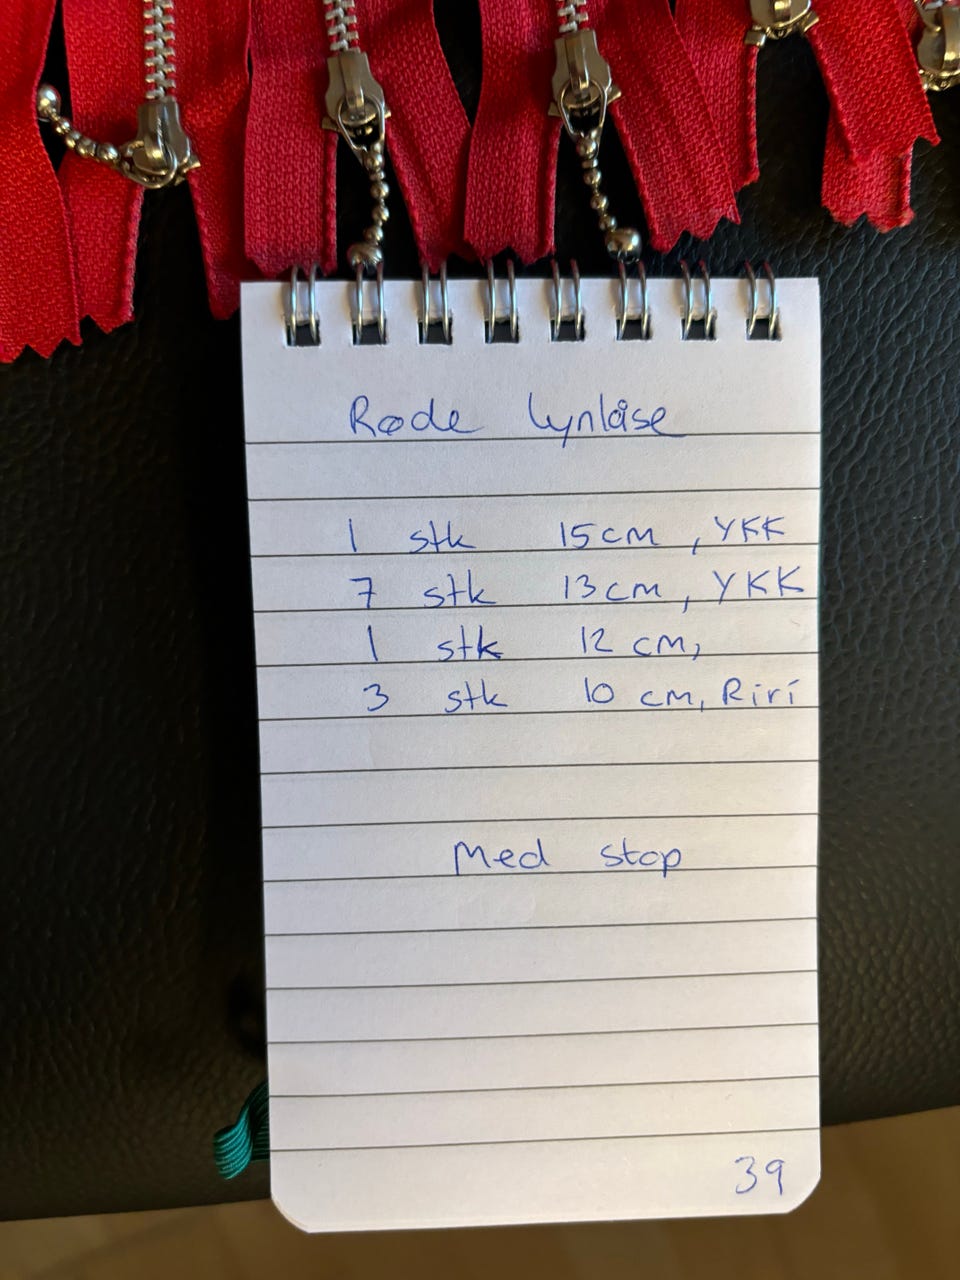 Røde lynlåse
1 stk 15 cm, YKK
7 stk 13 cm, YKK
1 stk 12 cm,
3 stk 10 cm, Riri
Med stop
39